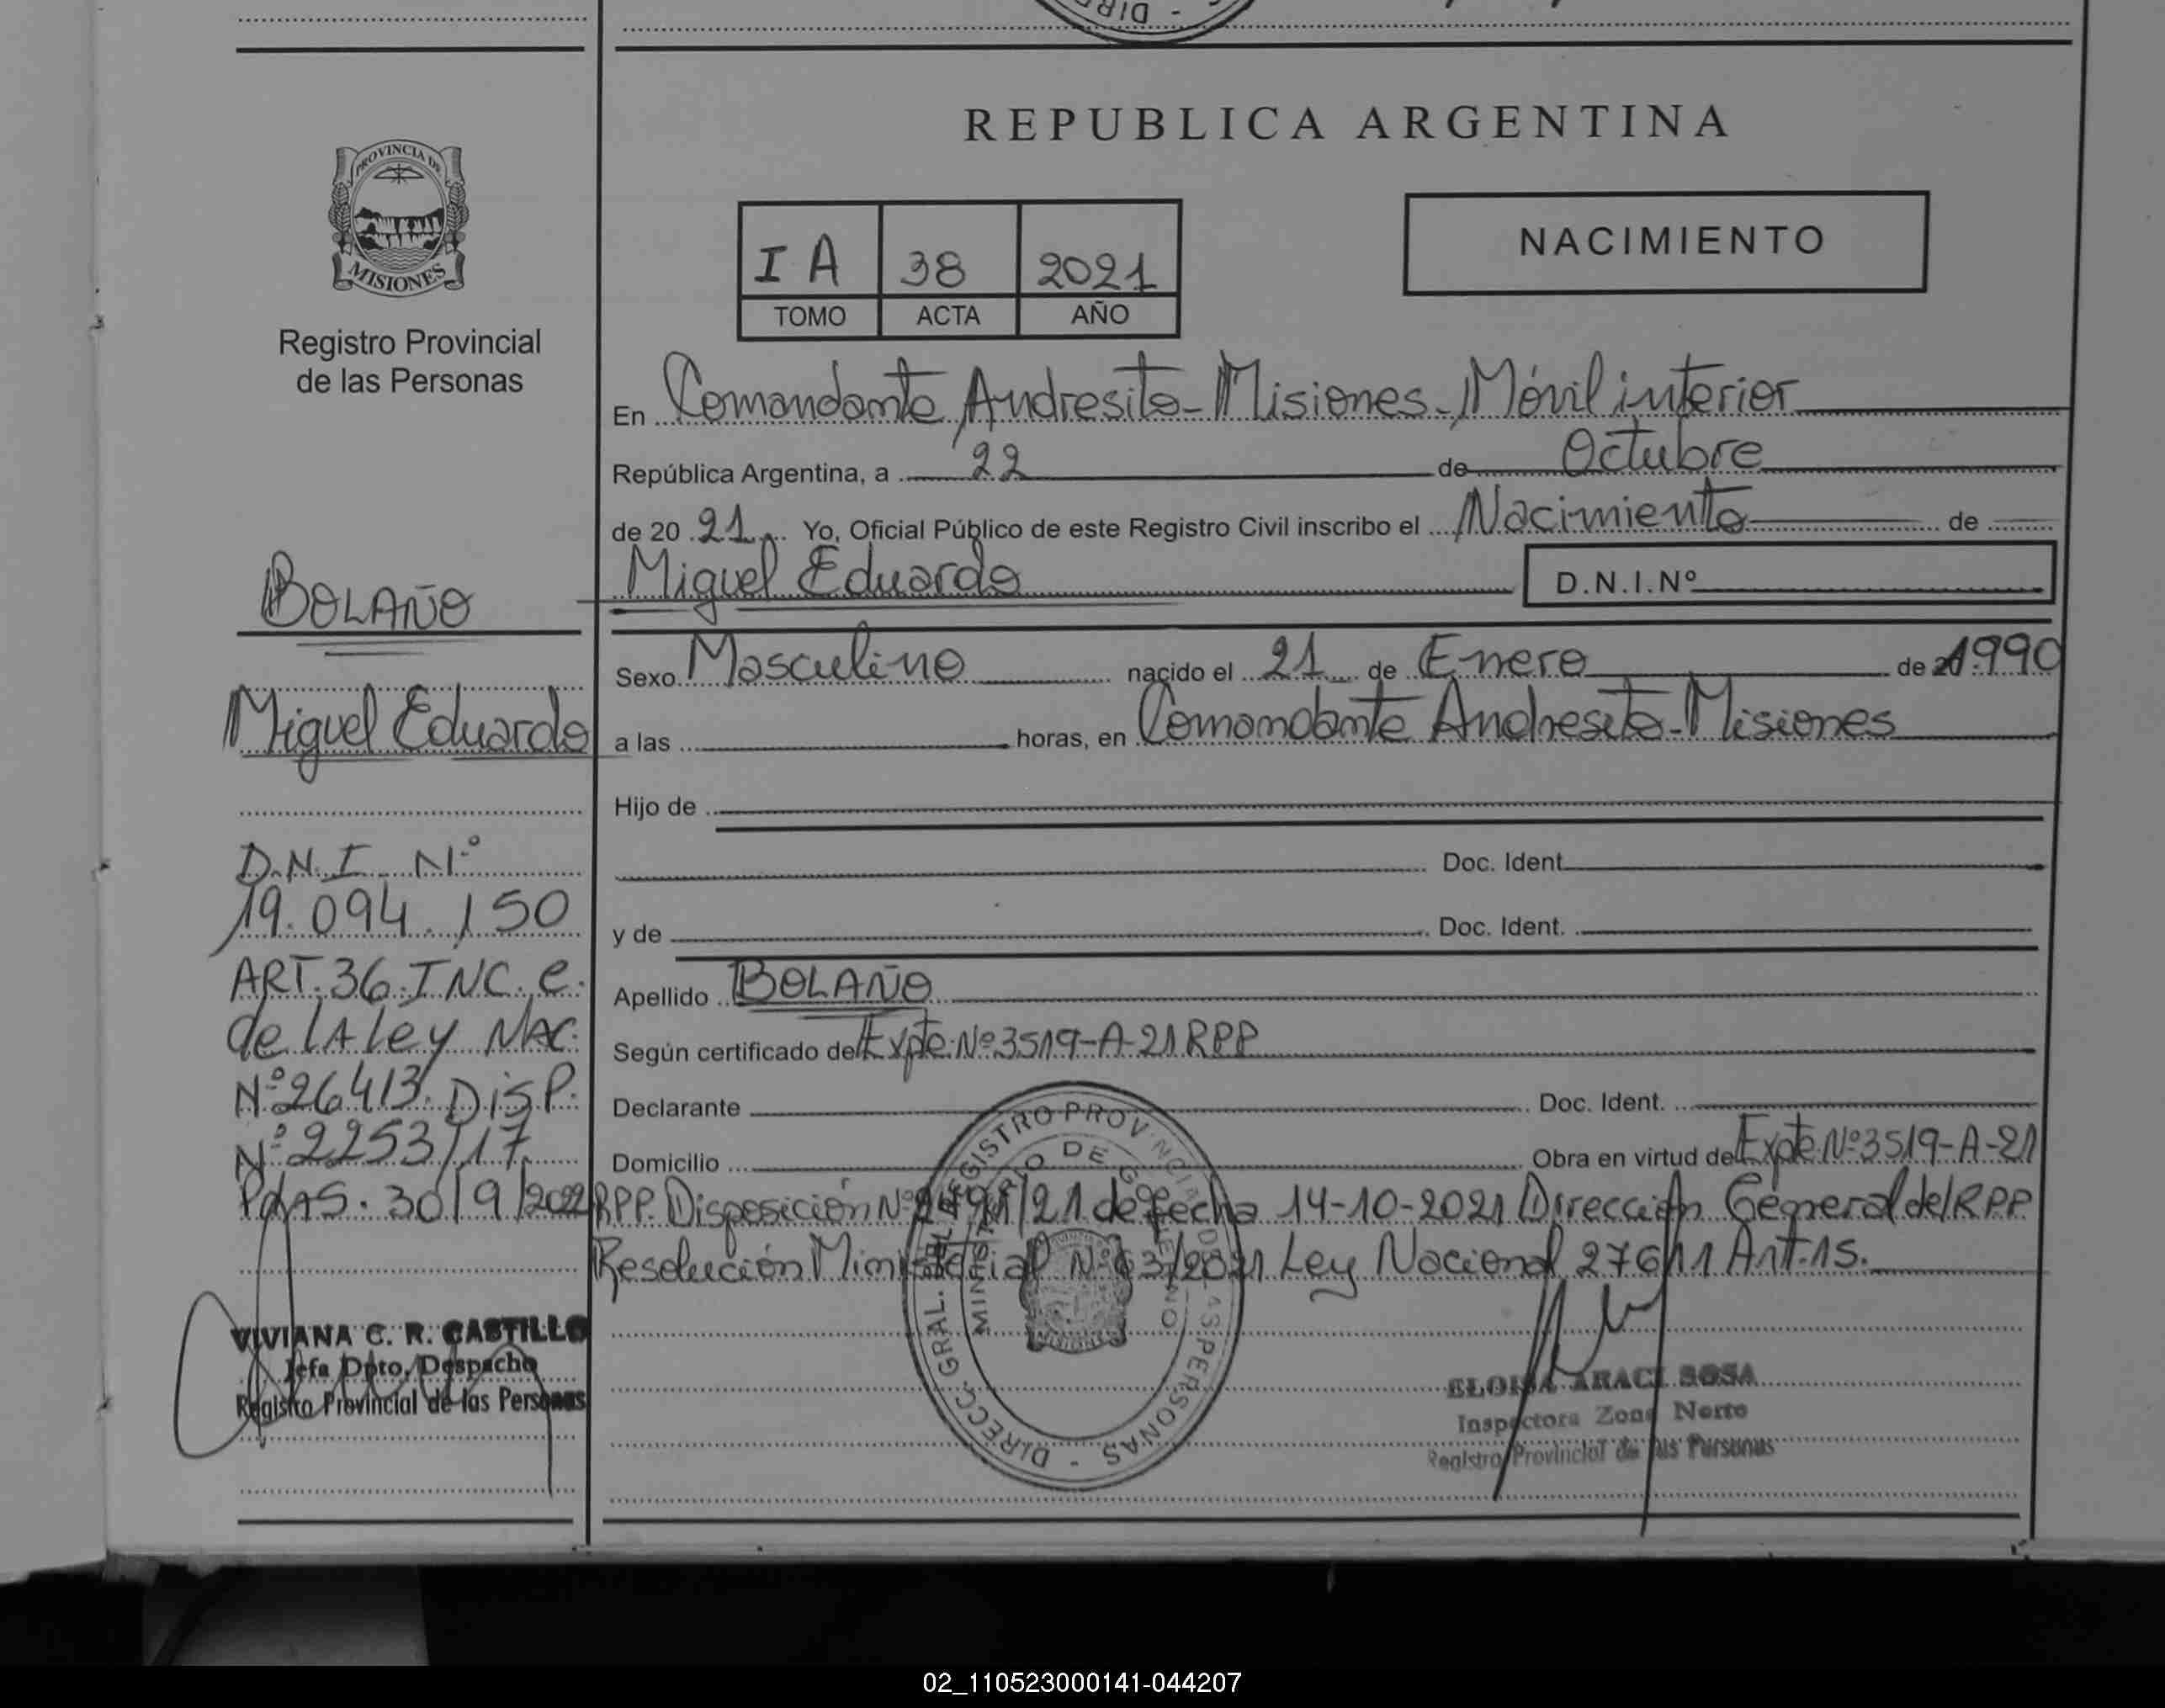 DIRE
REPUBLICA ARGENTINA
PROVINCIA DE
MISIONES
Registro Provincial
de las Personas
NACIMIENTO
I A 38 2021
TOMO ACTA AÑO
En Comandante Andresito - Misiones - Móvil interior
República Argentina, a 22 de Octubre
de 20 21 Yo, Oficial Público de este Registro Civil inscribo el Nacimiento de
Miguel Eduardo D.N.I.Nº
Sexo Masculino nacido el 21 de Enero de 1990
a las horas, en Comandante Andresito - Misiones
Hijo de
Doc. Ident.
y de Doc. Ident.
Apellido BOLAÑO
Según certificado de Expte. Nº 3519-A-21 RPP
Declarante Doc. Ident.
Domicilio Obra en virtud de Expte Nº 3519-A-21
RPP. Disposición Nº /21 de fecha 14-10-2021 Dirección General del RPP
Resolución Ministerial Nº 63/2021 Ley Nacional 27611 Art. 15.
BOLAÑO
Miguel Eduardo
D.N.I. Nº
19.094.150
ART. 36. INC. e.
de lA ley NAC.
Nº 26413. DISP.
Nº 2253/17.
PdAS. 30/9/2022
VIVIANA C. R. CASTILLO
Jefa Dpto. Despacho
Registro Provincial de las Personas
DIRECC. GRAL. REGISTRO PROVINCIAL DE LAS PERSONAS -
MINISTERIO DE GOBIERNO
MISIONES
ELOISA ARACI SOSA
Inspectora Zona Norte
Registro Provincial de las Personas
02_110523000141-044207